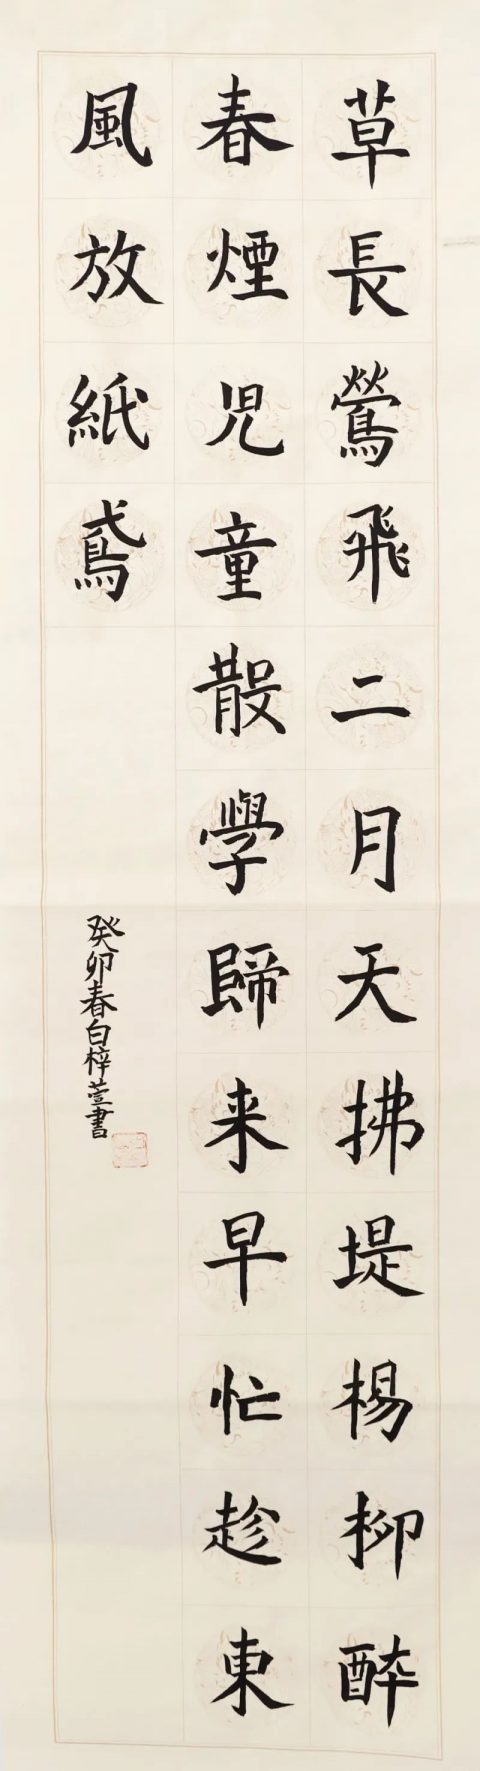 草長鶯飛二月天拂堤楊柳醉
春煙児童散學歸来早忙趁東
風放紙鳶
癸卯春白梓萱書